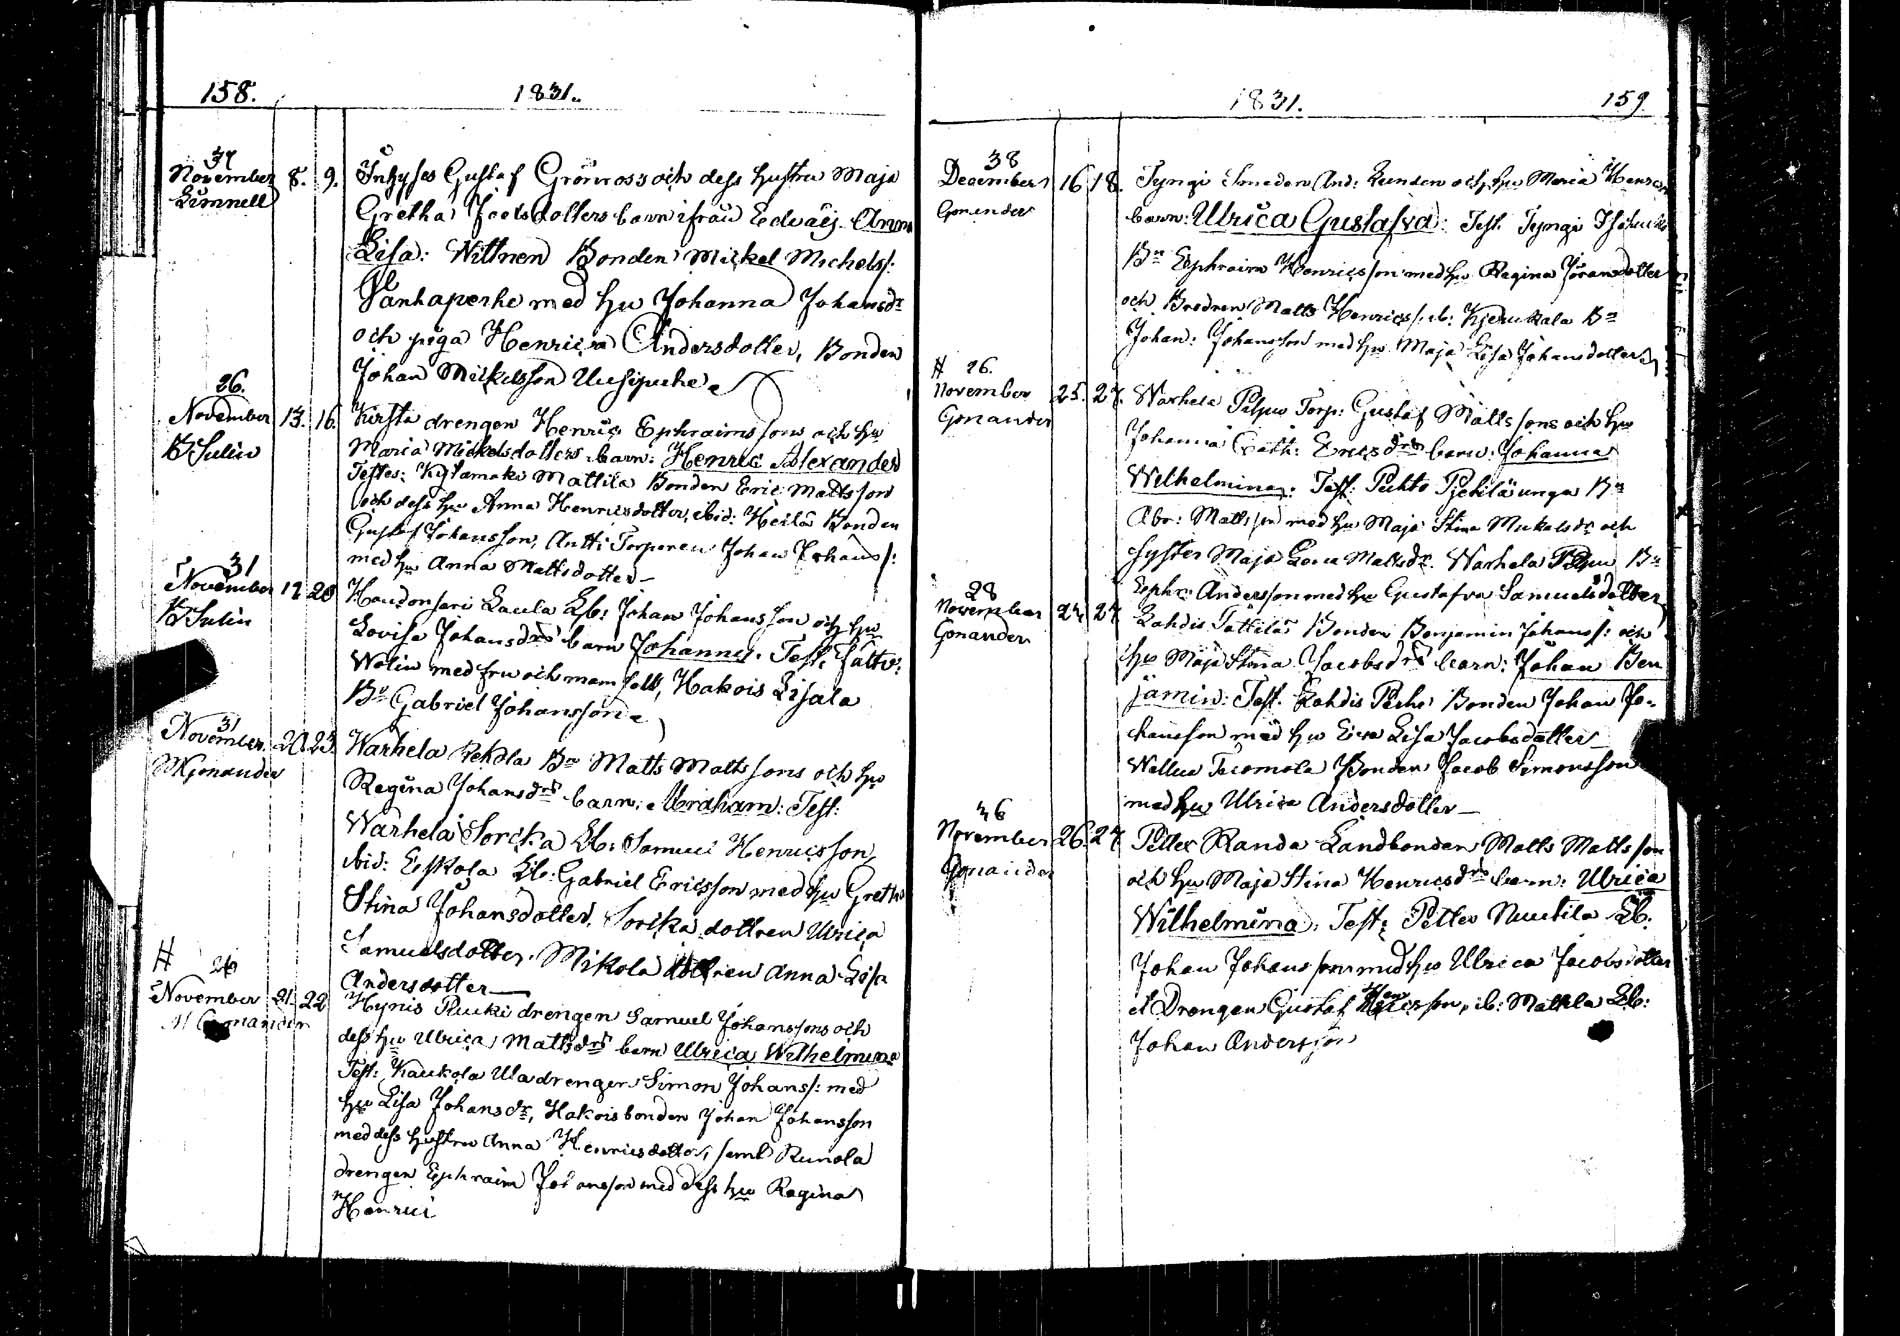 158.
1831.
37
November 8. 9.
Limnell
Inhyses Gustaf Grönroos och dess hustru Maja
Gretha Joels dotters barn ifrån Edväis. Anna
Lisa: Wittnen Bonden Mickel Michels/:
Vanhaperhe med hu Johanna Johansdr
och piga Henrica Andersdotter, Bonden
Johan Mickelsson Uusiperhe
26.
November 13. 16.
B Sulin
Kirsta drengen Henric Ephraimssons och hu
Maria Mickelsdotters barn: Henric Alexander
Testes: Kylamaki Mattila Bonden Eric Mattsson
och dess hu Anna Henricsdotter, ibid: Heilä Bonden
Gustaf Johansson, Antti Torparen Johan Johans/:
med hu Anna Mattsdotter
31
November 17 20
B Sulin
Laula Lb: Johan Johansson och hu
Lovisa Johansdrs barn Johannes. Test:
Wolin med fru och mamsell, Hakois Lisala
Bn Gabriel Johansson
31
November. 20. 23.
M Gonander
Warhela Pekola Bn Matts Mattssons och hu
Regina Johansdrs barn: Abraham: Test:
Warhela Sorcka Lb: Samuel Henricsson,
ibid: Eskola Lb: Gabriel Ericsson med hu Greta
Stina Johansdotter, Sorcka dottren Ulrica
Samuelsdotter. Mikola dottren Anna Lisa
Andersdotter
26
November 21. 22
M Gonander
Hynis Ruuki drengen Samuel Johanssons och
dess hu Ulrica Mattsdrs barn Ulrica Wilhelmina
Test: Kaukola Ula drengen Simon Johans/: med
hu Lisa Johansdr, Hakois bonden Johan Johansson
med dess hustru Anna Henricsdotter, samt Runola
drengen Ephraim Johansson med dess hu Regina
Henrici
1831.
159.
38
December 16 18.
Gonander
Tyngi Smeden And: Lunden och hu Maria Henrics
barn: Ulrica Gustafva: Test. Tyngi
Bn Ephraim Henricsson med hu Regina Jöransdotter
och Brodren Matts Henrics/: ib: Bn
Johan: Johansson med hu Maja Lisa Johansdotter
26.
November 25. 27.
Gonander
Warhela Pilpu Torp: Gustaf Mattssons och hu
Johanna Cath: Ericsdrs barn: Johanna
Wilhelmina. Test: Puhto unga Bn
Abr: Mattsson med hu Maja Stina Mickelsdr och
syster Maja Lena Mattsdr. Warhela Pilpu Bn
Ephr: Andersson med hu Gustafva Samuelsdotter
28
November 24 27
Gonander
Lahdis Tattila Bonden Benjamin Johans/: och
hu Maja Stina Jacobsdrs barn: Johan Ben
jamin: Test. Lahdis Perho Bonden Johan Jo-
hansson med hu Eva Lisa Jacobsdotter
Wellua Tuomola Bonden Jacob Simonsson
med hu Ulrica Andersdotter
36
November 26. 27
Gonander
Peller Randa Landbonden Matts Mattsson
och hu Maja Stina Henricsdrs barn: Ulrica
Wilhelmina. Test: Peller Nuutila Lb:
Johan Johansson med hu Ulrica Jacobsdotter
et Drengen Gustaf Henricsson, ib: Mattila Lb:
Johan Andersson